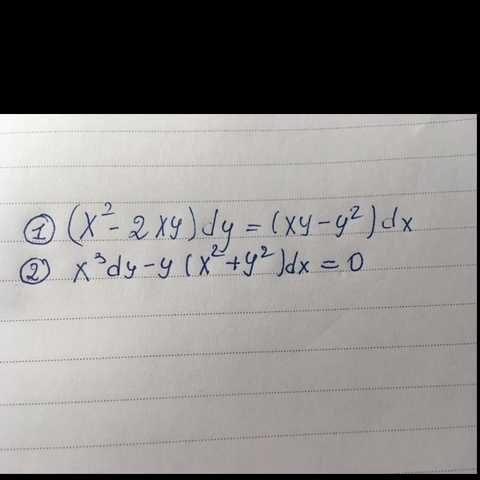 ① (x² - 2xy)dy = (xy - y²)dx
② x³dy - y(x² + y²)dx = 0